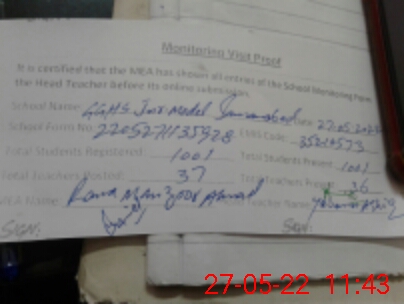 Monitoring Visit Proof
It is certified that the MEA has shown all entries of the School Monitoring Form
the Head Teacher before its online submission.
School Name: GGHS Model Date: 27.05.2022
School Form No: EMIS Code:
Total Students Registered: 1001 Total Students Present: 1001
Total Teachers Posted: 37 Total Teachers Present: 36
MEA Name: Rana Manzoor Ahmad Teacher Name:
SIGN: SIGN:
27-05-22 11:43